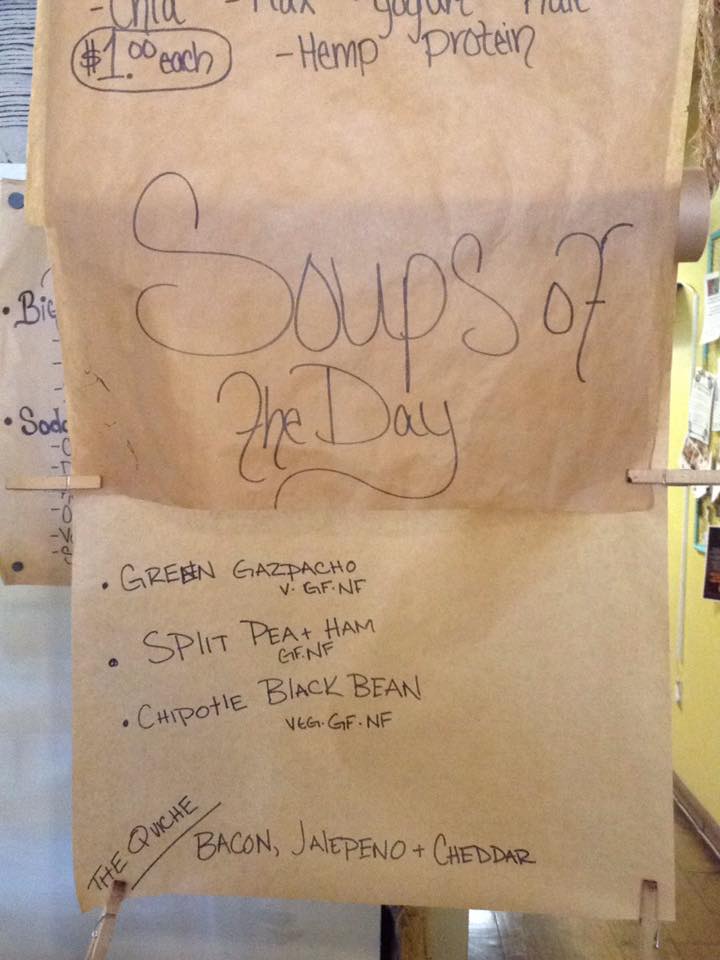 -Chia -Flax yogurt
$1.00 each -Hemp protein
Soups of
the Day
• GREEN GAZPACHO
V. GF. NF
• SPlIT PEA + HAM
GF. NF
• CHIPOTlE BlACK BEAN
VEG. GF. NF
THE QUICHE
BACON, JAlEPENO + CHEDDAR
• Big
• Soda